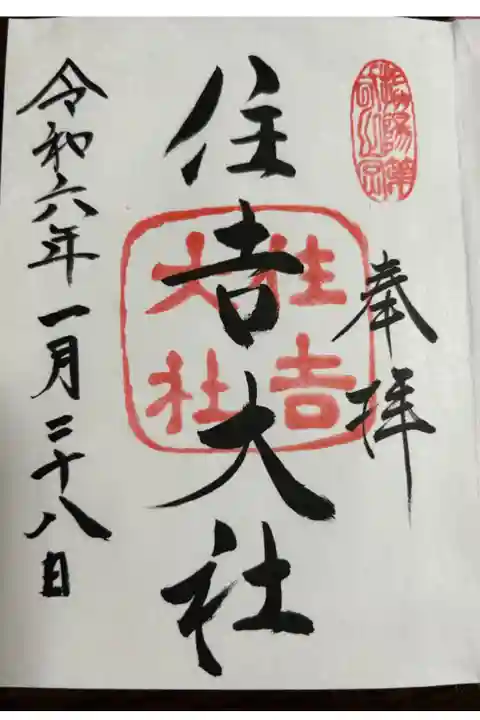 奉拝
住吉大社
住吉
大社
令和六年一月二十八日